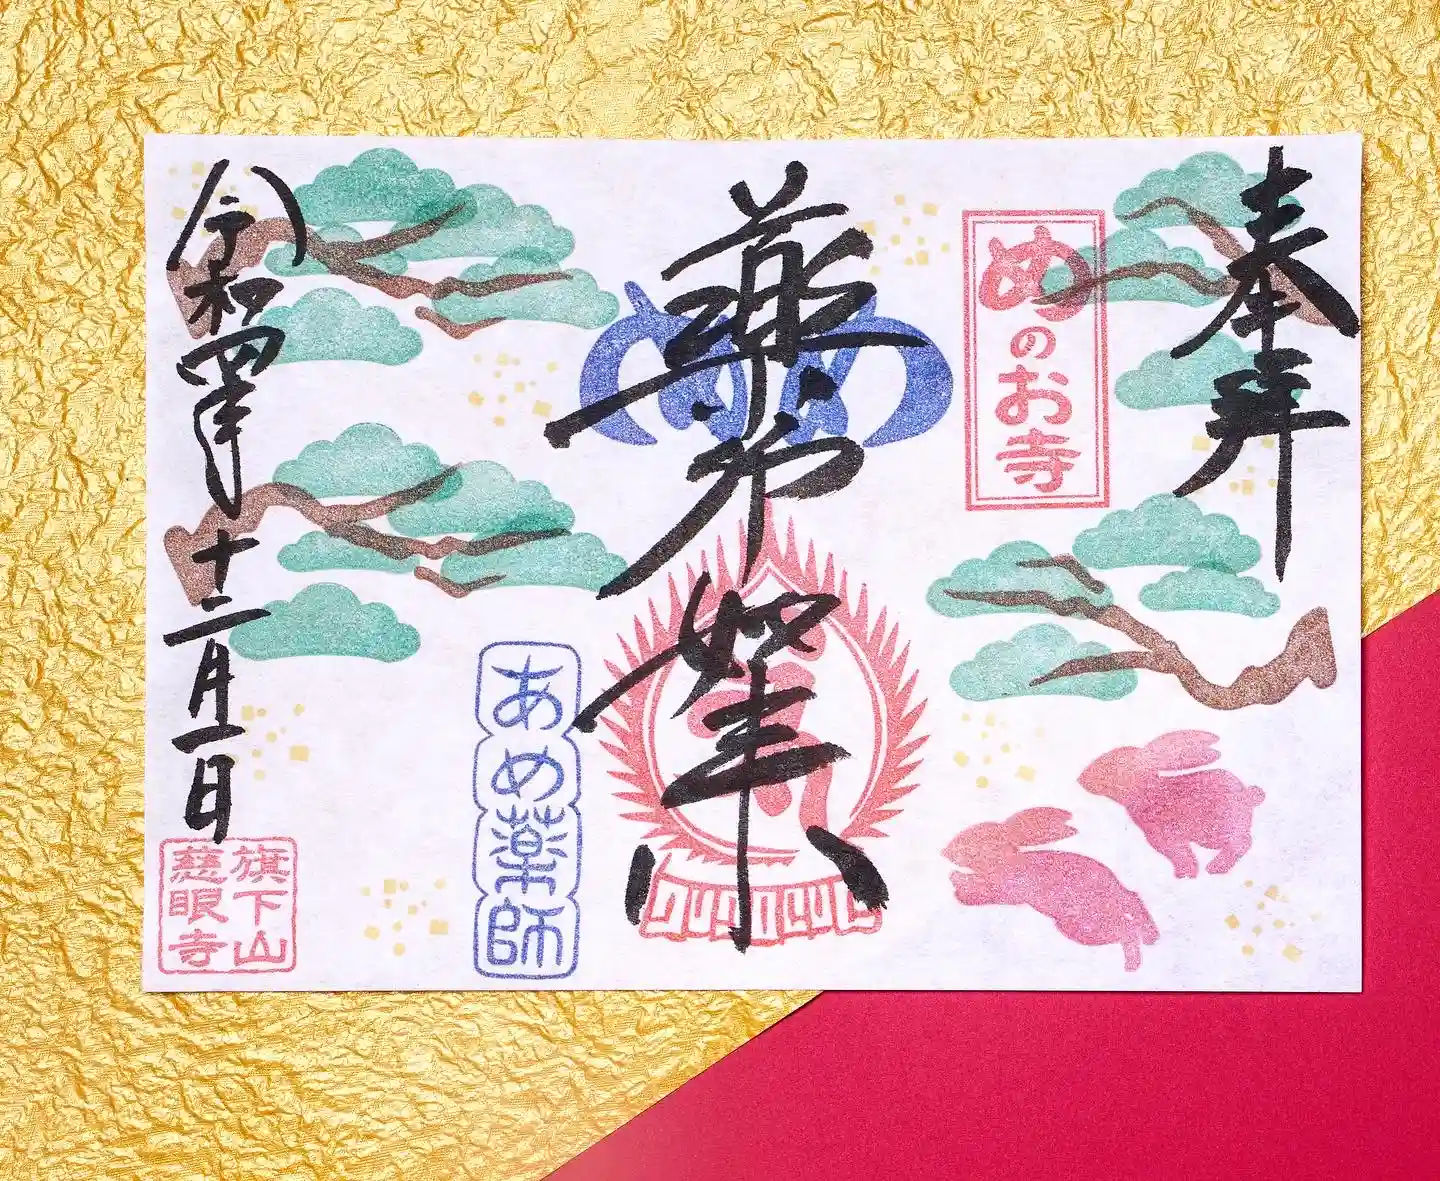 奉拝
めのお寺
め
薬師如来
あめ薬師
令和四年十二月一日
旗下山
慈眼寺